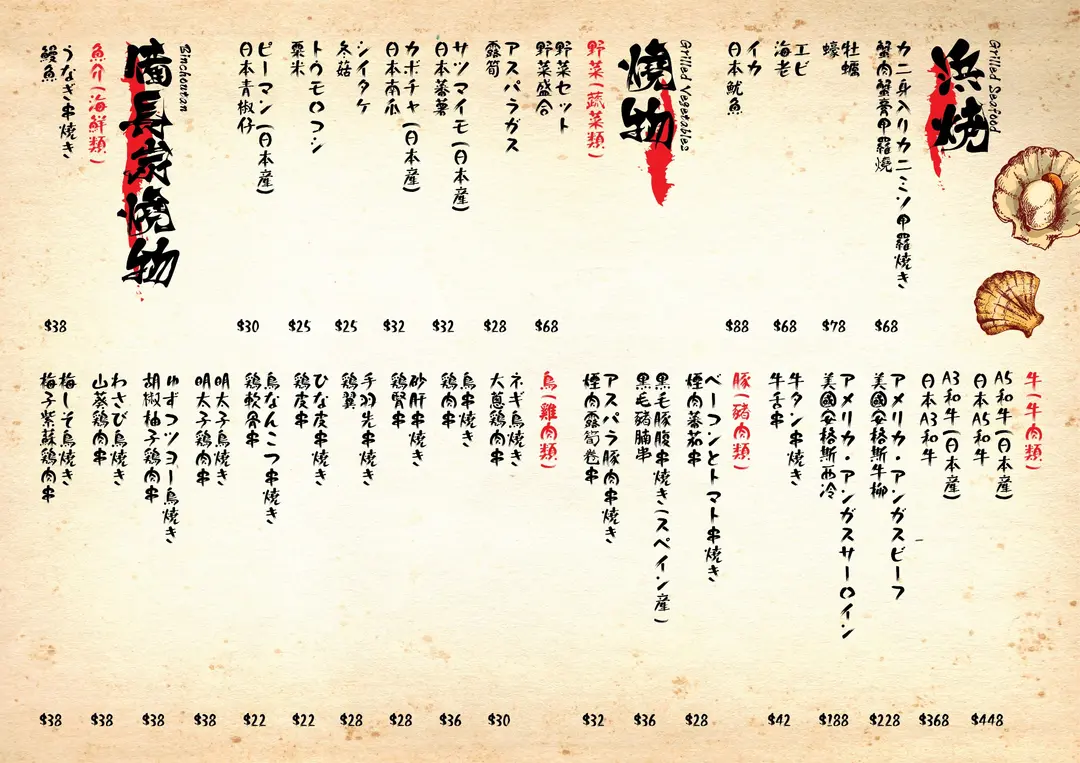 浜焼
Grilled Seafood
カニ身入りカニミソ甲羅焼き
蟹肉蟹膏甲羅燒
$68
牡蠣
蠔
$78
エビ
海老
$68
イカ
日本魷魚
$88
燒物
Grilled Vegetables
野菜(蔬菜類)
野菜セット
野菜盛合
$68
アスパラガス
露筍
$28
サツマイモ(日本産)
日本蕃薯
$32
カボチャ(日本産)
日本南瓜
$32
シイタケ
冬菇
$25
トウモロコシ
粟米
$25
ピーマン(日本産)
日本青椒仔
$30
備長炭燒物
Binchoutan
魚介(海鮮類)
うなぎ串焼き
鰻魚
$38
牛(牛肉類)
A5和牛(日本産)
日本A5和牛
$448
A3和牛(日本産)
日本A3和牛
$368
アメリカ・アンガスビーフ
美國安格斯牛柳
$228
アメリカ・アンガスサーロイン
美國安格斯西冷
$188
牛タン串焼き
牛舌串
$42
豚(豬肉類)
ベーコンとトマト串焼き
煙肉蕃茄串
$28
黒毛豚腹串焼き(スペイン産)
黑毛豬腩串
$36
アスパラ豚肉串焼き
煙肉露筍卷串
$32
鳥(雞肉類)
ネギ鳥焼き
大蔥鶏肉串
$30
鳥串焼き
鶏肉串
$36
砂肝串焼き
鶏腎串
$28
手羽先串焼き
鶏翼
$28
ひな皮串焼き
鶏皮串
$22
鳥なんこつ串焼き
鶏軟骨串
$22
明太子鳥焼き
明太子鶏肉串
$38
ゆずコショー鳥焼き
胡椒柚子鶏肉串
$38
わさび鳥焼き
山葵鶏肉串
$38
梅しそ鳥焼き
梅子紫蘇鶏肉串
$38